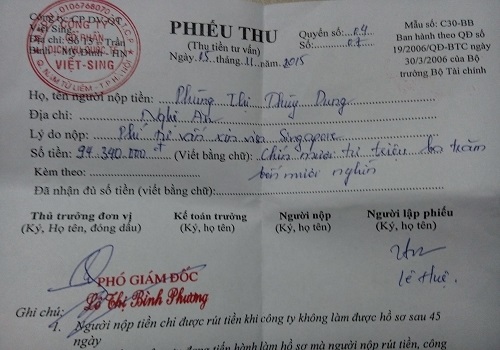 Công ty CP DV QT
Việt Sing.
Địa chỉ: Số 15 Trần
Bình - Mỹ Đình - HN
0106768070
CÔNG TY
CỔ PHẦN
VIỆT-SING
Q. NAM TỪ LIÊM - T.P HÀ NỘI
PHIẾU THU
(Thu tiền tư vấn)
Ngày 05 tháng 11 năm 2015
Quyển số: 04
Số: 07
Mẫu số: C30-BB
Ban hành theo QĐ số
19/2006/QĐ-BTC ngày
30/3/2006 của Bộ
trưởng Bộ Tài chính
Họ, tên người nộp tiền: Phùng Thị Thùy Dung
Địa chỉ: Nghệ An
Lý do nộp: Phí tư vấn xin visa Singapore
Số tiền: 94.340.000 đ (Viết bằng chữ): Chín mươi tư triệu ba trăm
Kèm theo: bốn mươi nghìn
Đã nhận đủ số tiền (viết bằng chữ):
Thủ trưởng đơn vị Kế toán trưởng Người nộp Người lập phiếu
(Ký, Họ tên, đóng dấu) (Ký, họ tên) (Ký, họ tên) (Ký, họ tên)
PHÓ GIÁM ĐỐC
Lê Thị Bình Phương
Lê Huệ.
Ghi chú:
1. Người nộp tiền chỉ được rút tiền khi công ty không làm được hồ sơ sau 45
ngày
đang tiến hành làm hồ sơ mà người nộp rút tiền, công